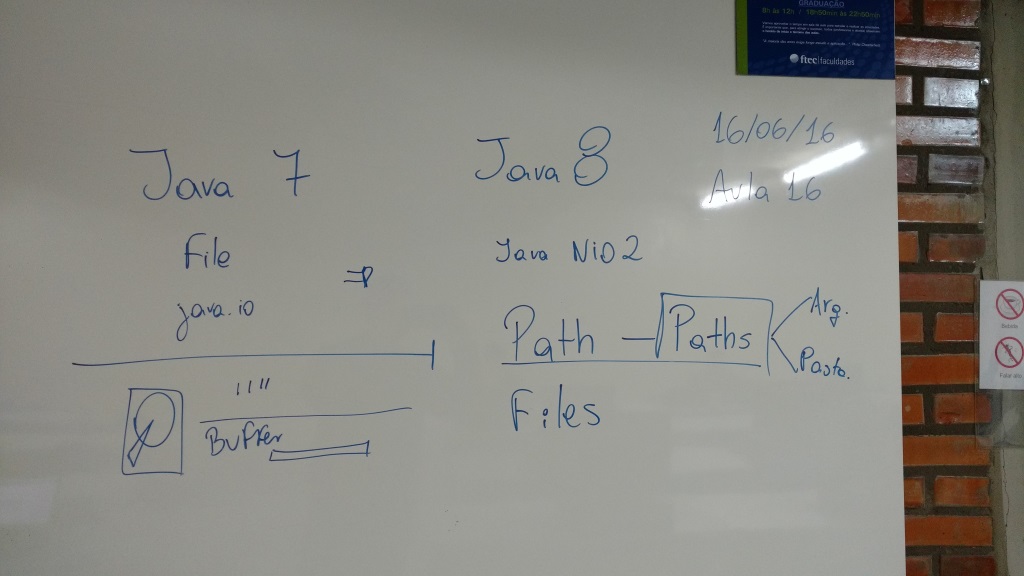 GRADUAÇÃO
8h às 12h / 18h50min às 22h50min
ftec faculdades
16/06/16
Aula 16
Java 7
File
java.io
""
Buffer
Java 8
Java NiO 2
Path — Paths
Arq.
Pasta.
Files
Falar alto